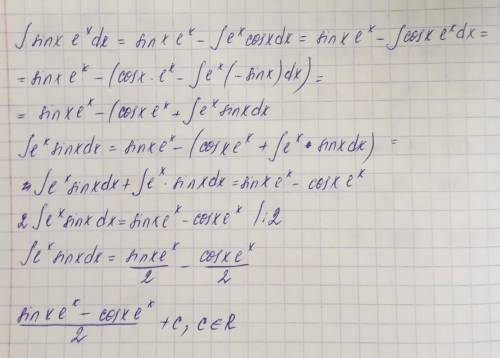 ∫ sinx eˣ dx = sinx eˣ − ∫ eˣ cosx dx = sinx eˣ − ∫ cosx eˣ dx =
= sinx eˣ − (cosx · eˣ − ∫ eˣ (−sinx) dx) =
= sinx eˣ − (cosx eˣ + ∫ eˣ sinx dx
∫ eˣ sinx dx = sinx eˣ − (cosx eˣ + ∫ eˣ · sinx dx) =
= ∫ eˣ sinx dx + ∫ eˣ · sinx dx = sinx eˣ − cosx eˣ
2 ∫ eˣ sinx dx = sinx eˣ − cosx eˣ /:2
∫ eˣ sinx dx = sinx eˣ / 2 − cosx eˣ / 2
(sinx eˣ − cosx eˣ) / 2 + c, c ∈ R